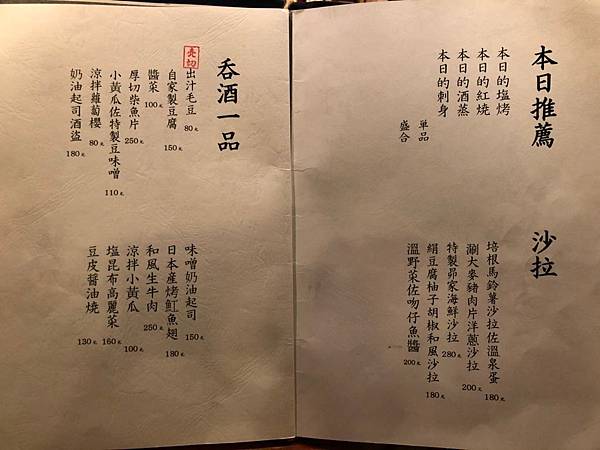 本日推薦
本日的塩烤
本日的紅燒
本日的酒蒸
本日的刺身
單品
盛合
沙拉
培根馬鈴薯沙拉佐溫泉蛋 180元
涮大麥豬肉片洋蔥沙拉 200元
特製昴家海鮮沙拉 280元
絹豆腐柚子胡椒和風沙拉 180元
溫野菜佐吻仔魚醬 200元
呑酒一品
売切
出汁毛豆 80元
自家製豆腐 150元
醬菜 100元
厚切柴魚片 250元
小黃瓜佐特製豆味噌 110元
涼拌蘿蔔櫻 80元
奶油起司酒盜 180元
味噌奶油起司 150元
日本産烤魟魚翅 180元
和風生牛肉 250元
涼拌小黃瓜 100元
塩昆布高麗菜 160元
豆皮醬油燒 130元